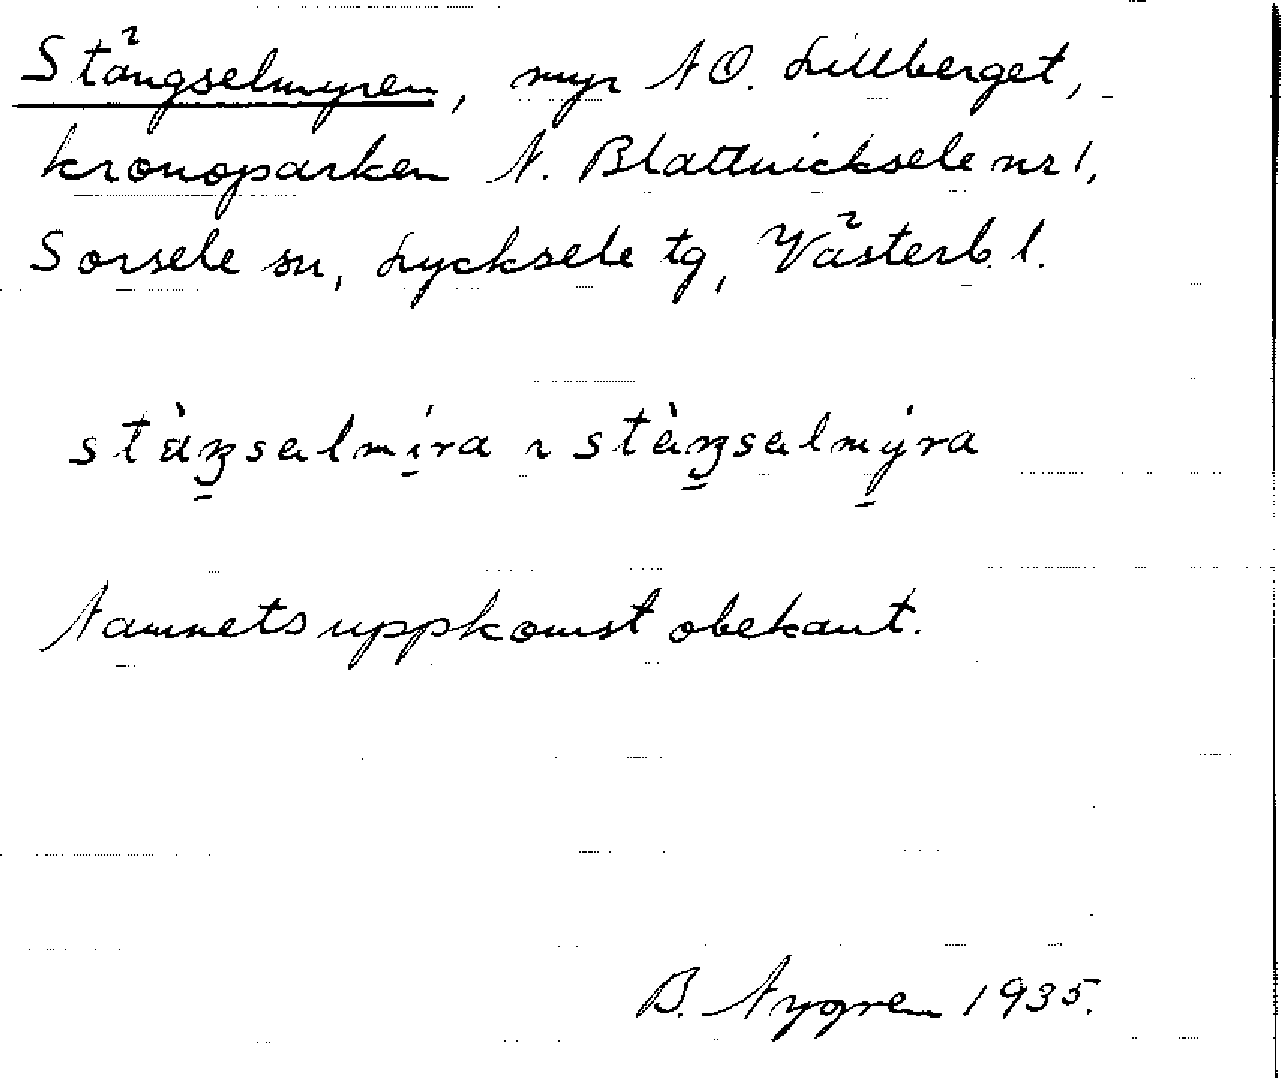 Stängselmyren, myr NO. Lillberget,
kronoparken N. Blattnicksele nr 1,
Sorsele sn, Lycksele tg, Västerb. l.
Namnets uppkomst obekant.
B. Nygren 1935.